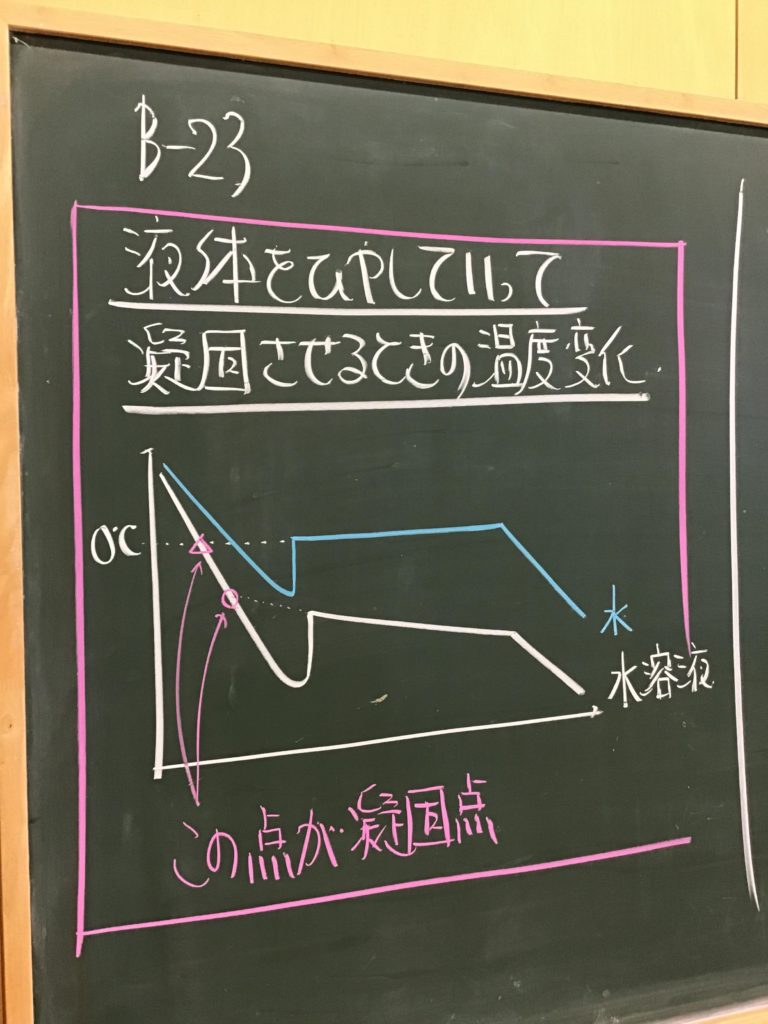 B-23
液体をひやしていって
凝固させるときの温度変化
0℃
水
水溶液
この点が凝固点